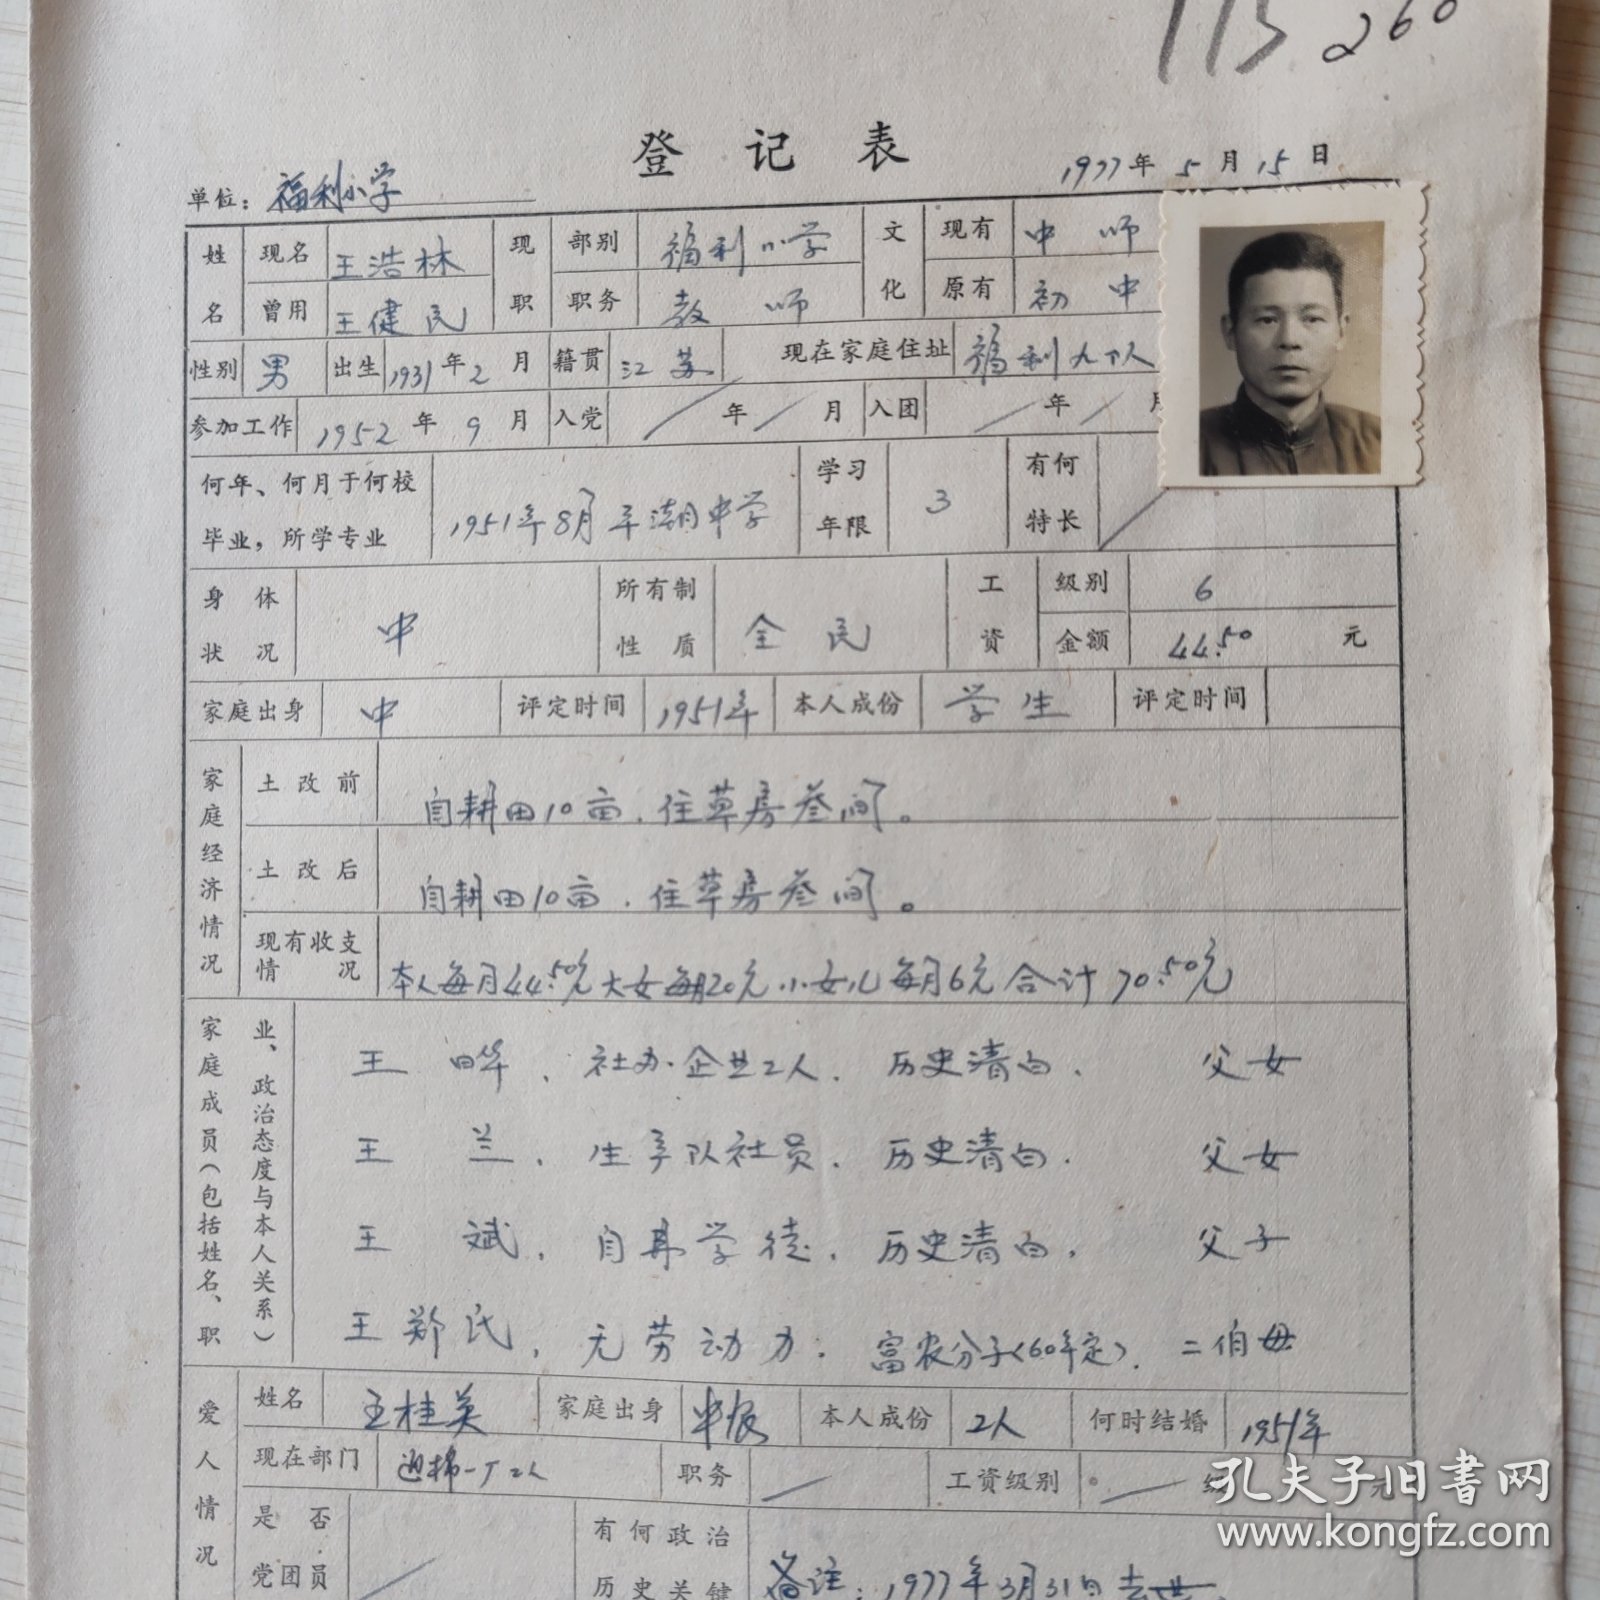 115 260
登记表
单位：福利小学 1977年5月15日
姓名 现名 王浩林 现职 部别 福利小学 文化 现有 中师
曾用 王健民 职务 教师 原有 初中
性别 男 出生 1931年2月 籍贯 江苏 现在家庭住址 福利九队
参加工作 1952年9月 入党 / 年 / 月 入团 / 年 / 月
何年、何月于何校 学习 有何
1951年8月平潮中学 3 /
毕业，所学专业 年限 特长
身体状况 中 所有制性质 全民 工资 级别 6
金额 44.50 元
家庭出身 中 评定时间 1951年 本人成份 学生 评定时间
家庭经济情况 土改前 自耕田10亩．住草房叁间。
土改后 自耕田10亩．住草房叁间。
现有收支情况 本人每月44.50元大女每月20元小女儿每月6元合计70.50元
家庭成员（包括姓名、职业、政治态度与本人关系）
王晔．社办企业工人．历史清白． 父女
王兰．生产队社员．历史清白． 父女
王斌．自弗学徒．历史清白． 父子
王郑氏．无劳动力．富农分子（60年定）．二伯母
爱人情况 姓名 王桂英 家庭出身 中农 本人成份 工人 何时结婚 1951年
现在部门 棉一厂工人 职务 / 工资级别 / 级 元
是否党团员 / 有何政治历史关键 备注：1977年3月31日去世．
孔夫子旧书网
www.kongfz.com